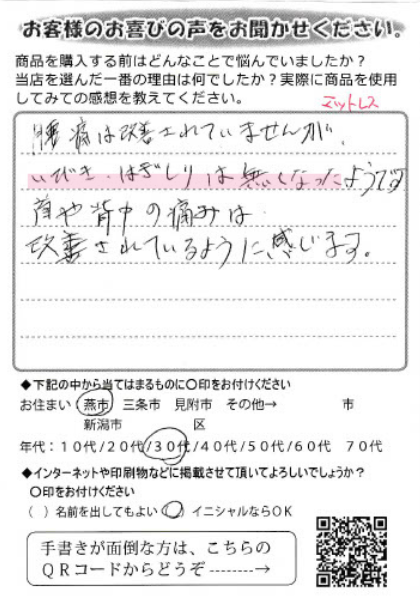 お客様のお喜びの声をお聞かせください。
商品を購入する前はどんなことで悩んでいましたか？
当店を選んだ一番の理由は何でしたか？実際に商品を使用
してみての感想を教えてください。
マットレス
腰痛は改善されていませんが、
いびき・はぎしりは無くなったようです
首や背中の痛みは
改善されているように感じます。
◆下記の中から当てはまるものに〇印をお付けください
お住まい：燕市　三条市　見附市　その他→　　　　市
新潟市　　　　　　区
年代：１０代/２０代/３０代/４０代/５０代/６０代　７０代
◆インターネットや印刷物などに掲載させて頂いてよろしいでしょうか？
〇印をお付けください
（　）名前を出してもよい（〇）イニシャルならＯＫ
手書きが面倒な方は、こちらの
ＱＲコードからどうぞ--------→